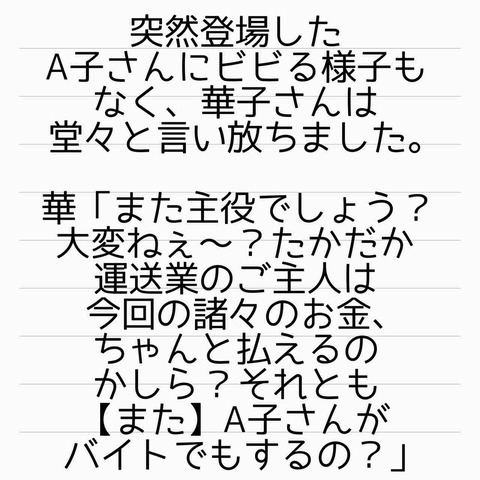 突然登場した
A子さんにビビる様子も
なく、華子さんは
堂々と言い放ちました。
華「また主役でしょう？
大変ねぇ〜？たかだか
運送業のご主人は
今回の諸々のお金、
ちゃんと払えるの
かしら？それとも
【また】A子さんが
バイトでもするの？」